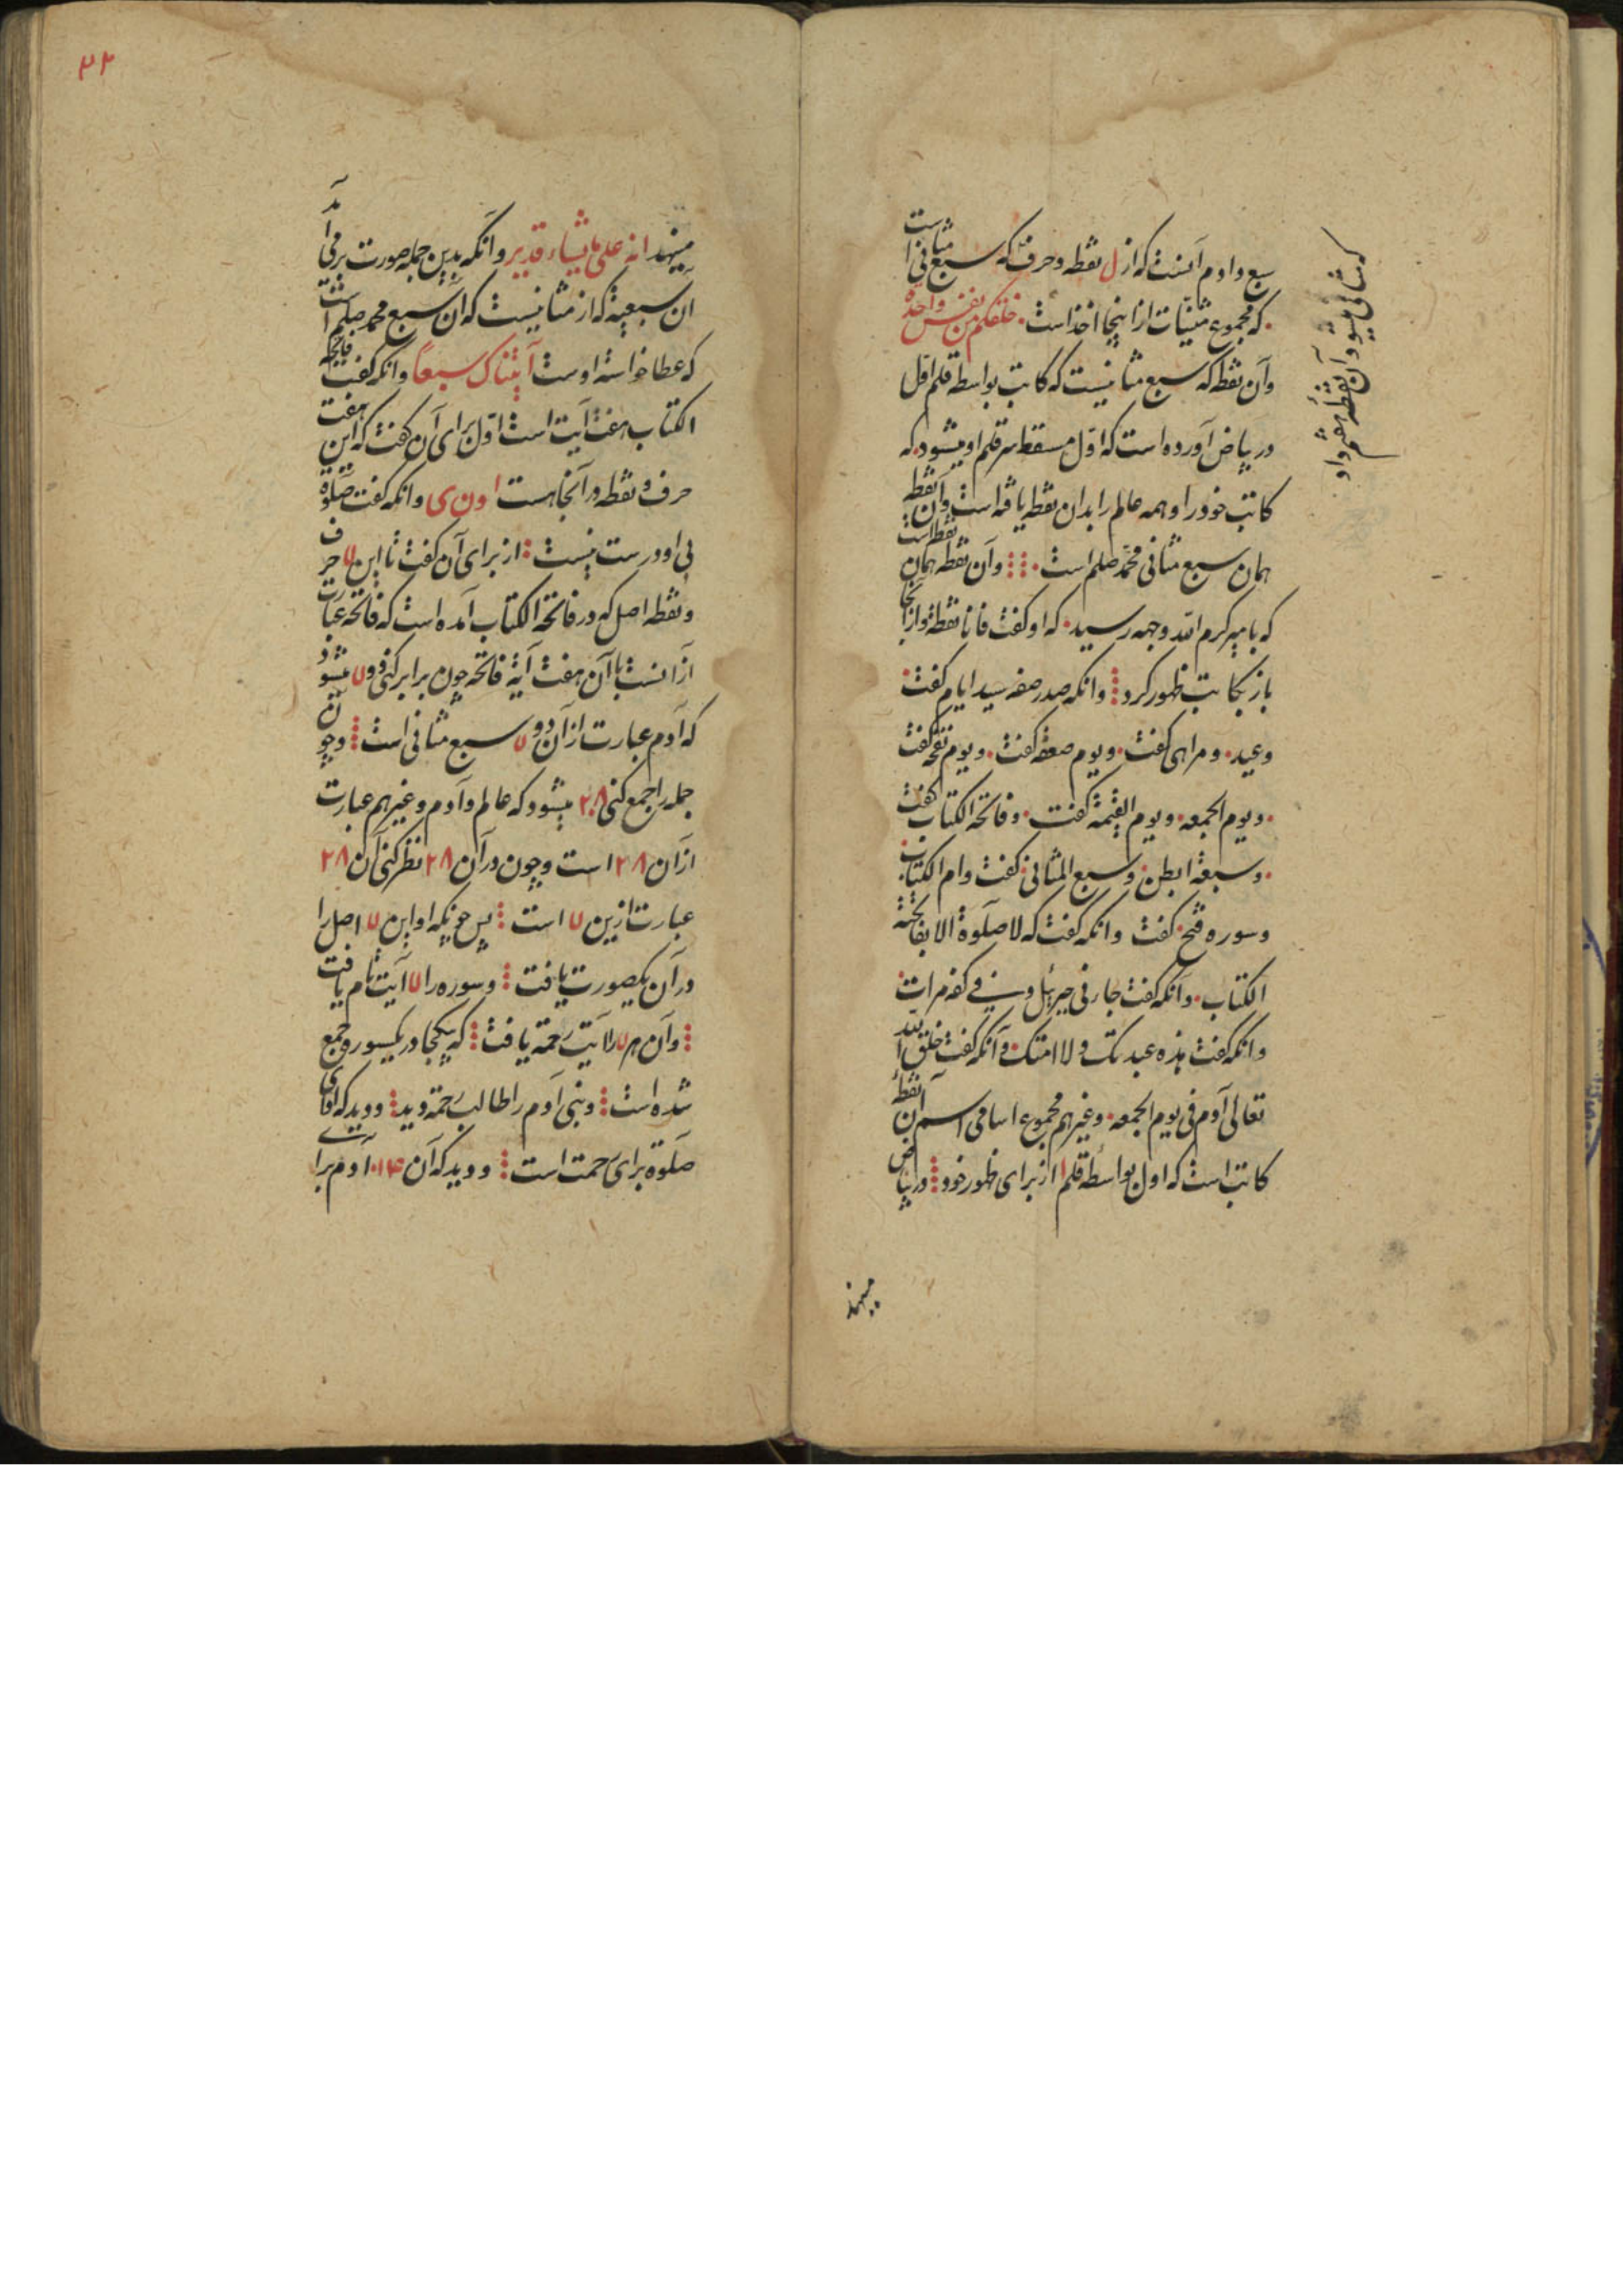 سبع و ادم آنست که از ل نقطه و حرف که سبع مثانی است
که مجموع مثنیّات از اینجا اخذ است خلقکم من نفس واحدة
وان نقطه که سبع مثانیست که کاتب بواسطه قلم اوّل
در بیاض آورده است که اوّل مسقط سر قلم او میشود که
کاتب خود را و همه عالم را بدان نقطه یافته است وان نقطه
همان سبع مثانی محمد صلعم است وآن نقطه همان نقطه است
که بامیر کرم الله وجهه رسید که او گفت فانا نقطة و از آنجا
باز بکاتب ظهور کرد وانکه صدر صفه سید ایام گفت
وعید و مرا می گفت ویوم صعقه گفت ویوم نفخه گفت
ویوم الجمعه ویوم القیمة گفت وفاتحة الکتاب گفت
وسبعة ابطن وسبع المثانی گفت وام الکتاب
وسوره فتح گفت وانکه گفت که لا صلوة الا بفاتحة
الکتاب وانکه گفت جاء نی جبرئیل وفی کفه مرات
وانکه گفت هذه عبدتک ولا امتک وآنکه گفت خلق الله
تعالی آدم فی یوم الجمعه وغیرهم مجموع اسامی اسم آن نقطهٔ
کاتب است که اول بواسطه قلم از برای ظهور خود در بیاض
که مثانی میشود آن نقطهٔ
میهند
۳۲
میهند انه علی ما یشاء قدیر وانکه بدین جمله صورت برمی آید
ان سبعیة که از مثانیست که ان سبع محمد صلعم است
که عطا خواسته اوست آتیناک سبعاً وانکه گفت فاتحه
الکتاب هفت آیت است اوّل برای آن گفت که این هفت
حرف و نقطه در آنجا هست ا ون ی وانکه گفت صلوة
بی او درست نیست از برای آن گفت تا این ۷ حرف
ونقطه اصل که در فاتحة الکتاب آمده است که فاتحه عبارت
ازانست با آن هفت آیة فاتحه چون برابر کنی دو ۷ میشود
که آدم عبارت از آن دو ۷ سبع مثانی است و چون
جمله را جمع کنی ۲۸ میشود که عالم و آدم و غیرهم عبارت
از آن ۲۸ است و چون در آن ۲۸ نظر کنی آن ۲۸
عبارت ازین ۷ است پس چونکه او این ۷ اصل را
در آن یکصورت یافت و سوره را ۷ آیت تام یافت
وآن هر ۷ را آیت رحمة یافت که یکجا در یکسوره جمع
شده است وبنی آدم را طالب رحمة دید ودید که
صلوة برای رحمت است ودید که آن ۱۴ آدم برای